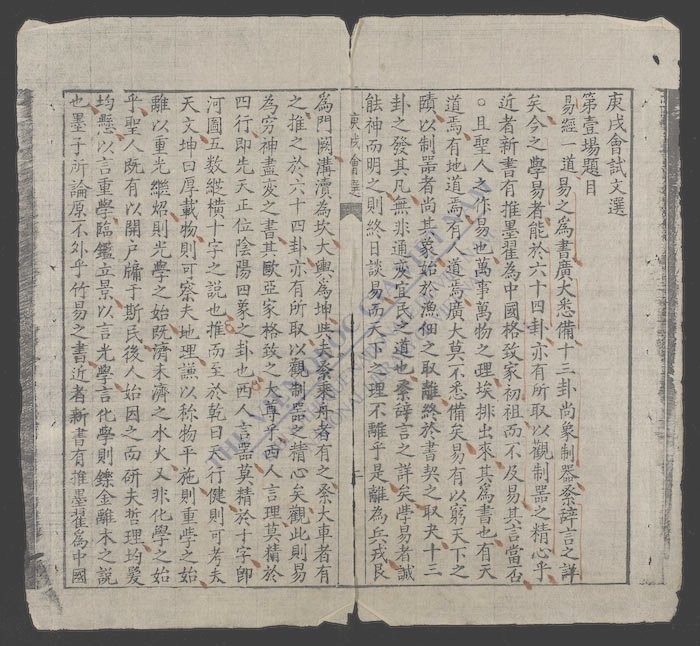 庚戌會試文選
第壹場題目
易經一道易之為書廣大悉備十三卦尚象制器繫辭言之詳
矣今之學易者能於六十四卦亦有所取以觀制器之精心乎
近者新書有推墨翟為中國格致家初祖而不及易其言當否
○且聖人之作易也萬事萬物之理埃排出來其為書也有天
道焉有地道焉有人道焉廣大莫不悉備矣易有以窮天下之
賾以制器者尚其象始於漁佃之取離終於書契之取夬十三
卦之發其凡無非通變宜民之道也繫辭言之詳矣學易者誠
能神而明之則終日談易而天下之理不離乎是離為兵戎艮
庚戌會選
為門闕溝瀆為坎大輿為坤與夫繫乘舟者有之繫大車者有
之推之於六十四卦亦有所取以觀制器之精心矣觀此則易
為窮神盡变之書其歐亞家格致之大尊乎西人言理莫精於
四行即先天正位陰陽四象之卦也西人言器莫精於十字即
河圖五数縱横十字之説也推而至於乾曰天行健則可考夫
天文坤曰厚載物則可察夫地理謙以称物平施則重學之始
離以重光繼炤則光學之始既濟未濟之水火又非化學之始
乎聖人既有以開户牖于斯民後人始因之而研夫哲理均髪
均懸以言重學臨鑑立景以言光學言化學則鑠金離木之説
也墨子所論原不外乎竹易之書近者新書有推墨翟為中國